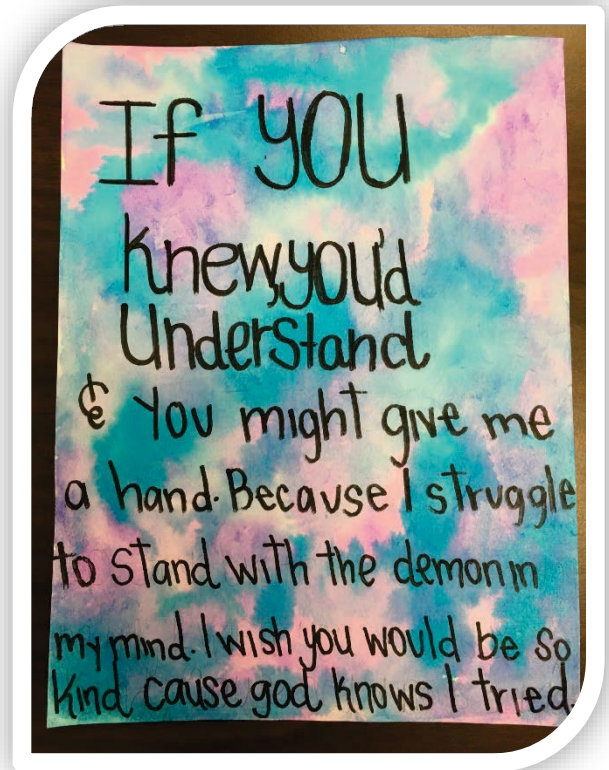 If YOU
Knew, you'd
Understand
& You might give me
a hand. Because I struggle
to stand with the demon in
my mind. I wish you would be so
kind cause god knows I tried.